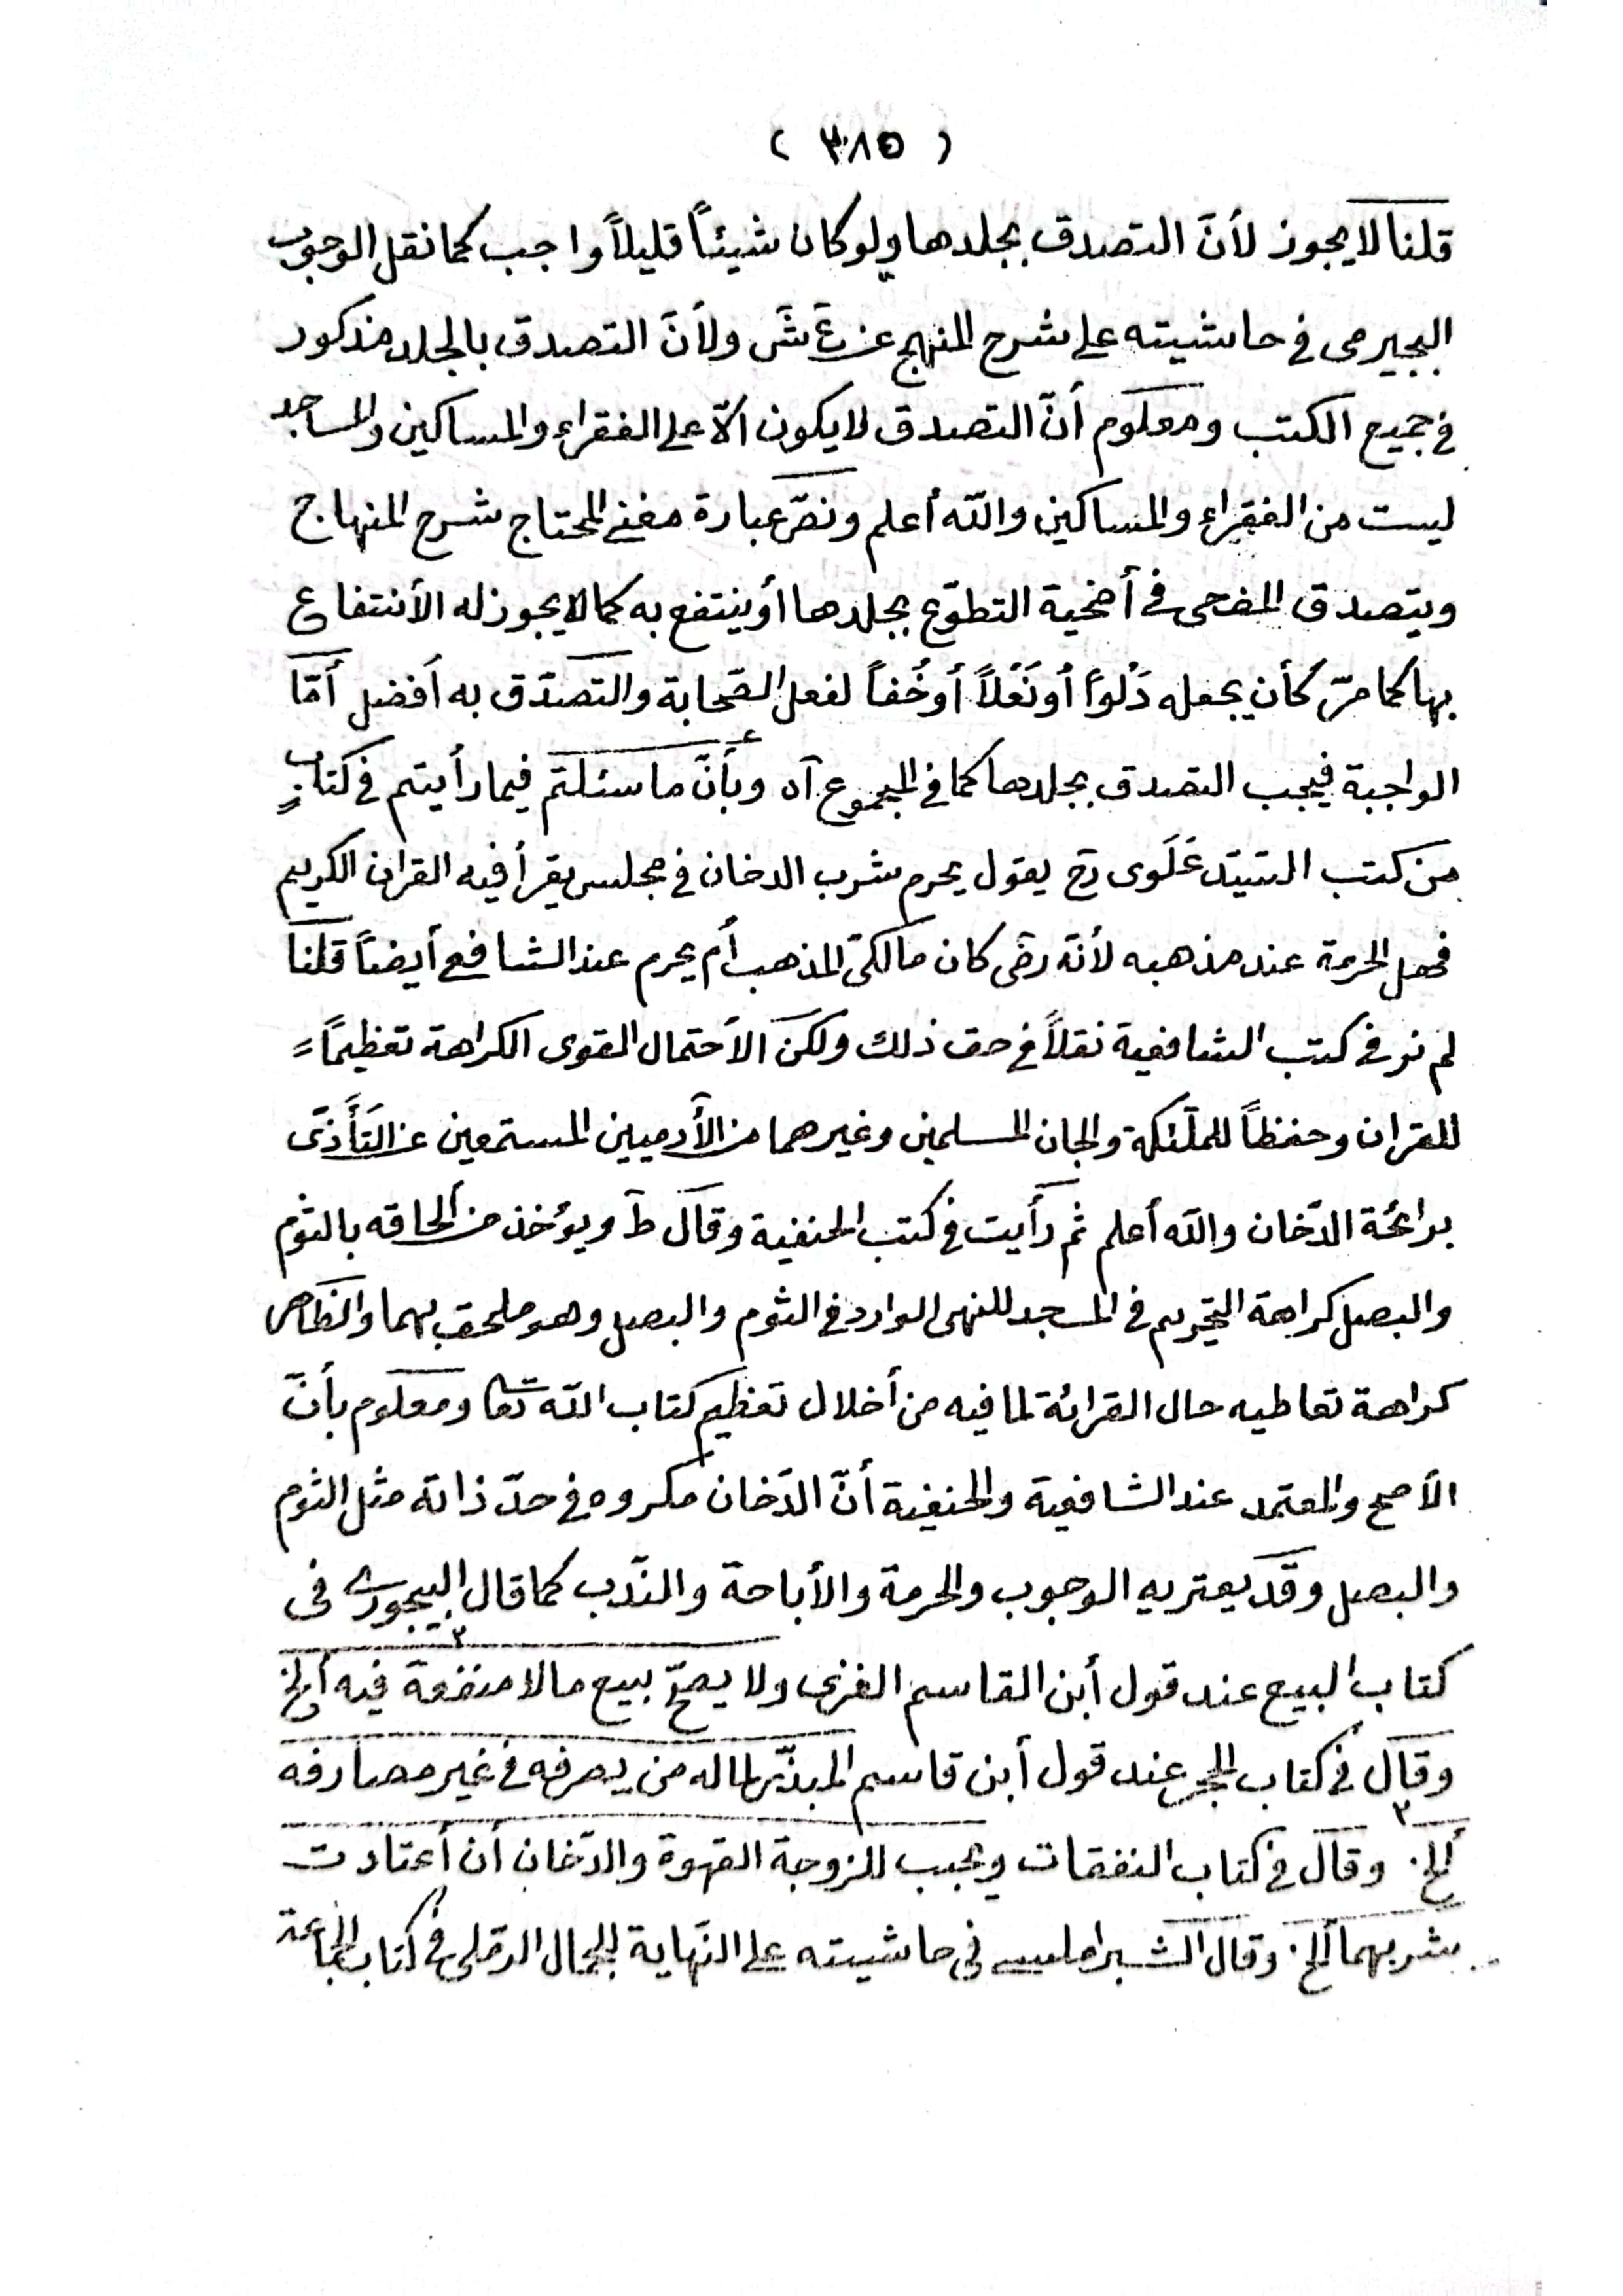 ( ٣٨٥ )
قلنا لا يجوز لأنَّ التصدق بجلدها ولو كان شيئاً قليلاً واجب كما نقل الوجوب
البجيرمى فى حاشيته على شرح المنهج عن عَ شَ ولأنَّ التصدق بالجلد مذكور
فى جميع الكتب ومعلوم أنّ التصدق لا يكون الّا على الفقراء والمساكين والمساجد
ليست من الفقراء والمساكين والله أعلم ونصّ عبارة مغنى المحتاج شرح المنهاج
ويتصدق المضحى فى أضحية التطوّع بجلدها أو ينتفع به كما لا يجوز له الأنتفاع
بها كما مرّ كأن يجعله دَلْواً أو نَعْلاً أو خُفاً لفعل الصّحابة والتصدّق به أفضل أمّا
الواجبة فيجب التصدق بجلدها كما فى المجموع آه وبأنّ ما سئلتم فيما رأيتم فى كتابٍ
من كتب السّيّد عَلَوى رح يقول يحرم شرب الدخان فى مجلس يقرأ فيه القران الكريم
فهل الحرمة عند مذهبه لأنّه رضى كان مالكىّ المذهب أم يحرم عند الشافعى أيضاً قلنا
لم نر فى كتب الشافعية نقلاً فى حق ذلك ولكن الاحتمال القوى الكراهة تعظيمًا =
للقران وحفظاً للملٓئكة والجان المسلمين وغيرهما من الآدميين المستمعين عن التَأَذّى
برائحة الدّخان والله أعلم ثم رأيت فى كتب الحنفية وقال طَ ويؤخذ من ألحاقه بالثوم
والبصل كراهة التحريم فى المسجد للنهى الوارد فى الثوم والبصل وهو ملحق بهما والظّاهر
كراهة تعاطيه حال القرائة لما فيه من أخلال تعظيم كتاب الله تعا ومعلوم بأنّ
الأصح والمعتمد عند الشافعية والحنفية أنّ الدّخان مكروه فى حدّ ذاته مثل الثوم
والبصل وقد يعتريه الوجوب والحرمة والأباحة والنّدب كما قال البيجورى فى
كتاب البيع عند قول أبن القاسم الغزى ولا يصحّ بيع ما لا منفعة فيه ألخ
وقال فى كتاب الحجر عند قول أبن قاسم المبذّر لماله من يصرفه فى غير مصارفه
ألخ. وقال فى كتاب النفقات ويجب للزوجة القهوة والدّخان أن أعتادت
شربهما ألخ. وقال الشبراملسى فى حاشيته على النّهاية للجمال الرّملى فى كتاب الجماعة